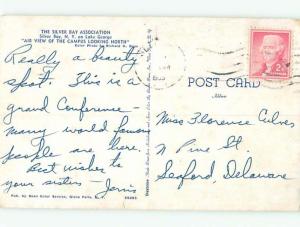 THE SILVER BAY ASSOCIATION
Silver Bay, N. Y. on Lake George
"AIR VIEW OF THE CAMPUS LOOKING NORTH"
Color Photo by Richard K. Dean
Really a beauty
spot. This is a
grand Conference—
many world famous
people are here.
Best wishes to
your sisters - Jarvis
Pub. by Dean Color Service, Glens Falls, N. Y.
POST CARD
Address
Miss Florence Culver
N Pine St.
Seaford, Delaware
2¢